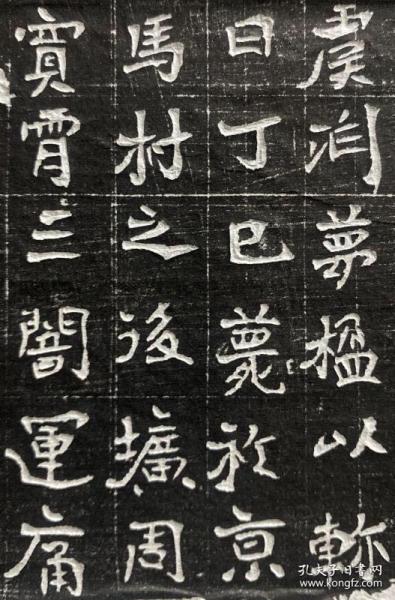 虞夢楹以軫
日丁巳薨於京
馬村之後壙周
實宵三闇運痛
孔夫子旧书网
www.kongfz.com